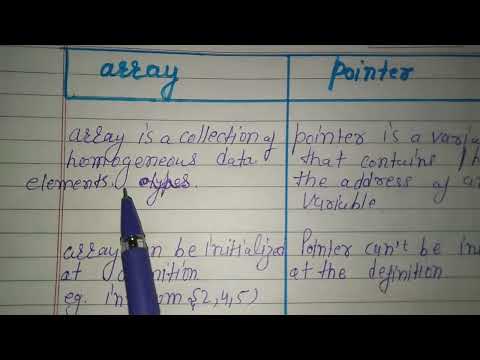 array
pointer
array is a collection of
homogeneous data
elements.
pointer is a varia
that contains
the address of
variable
array be initialized
at definition
eg. {2,4,5}
Pointer can't be
at the definition